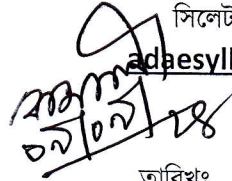 সিলেট
adaesyll
০৯/০৯/২৪
তারিখঃ